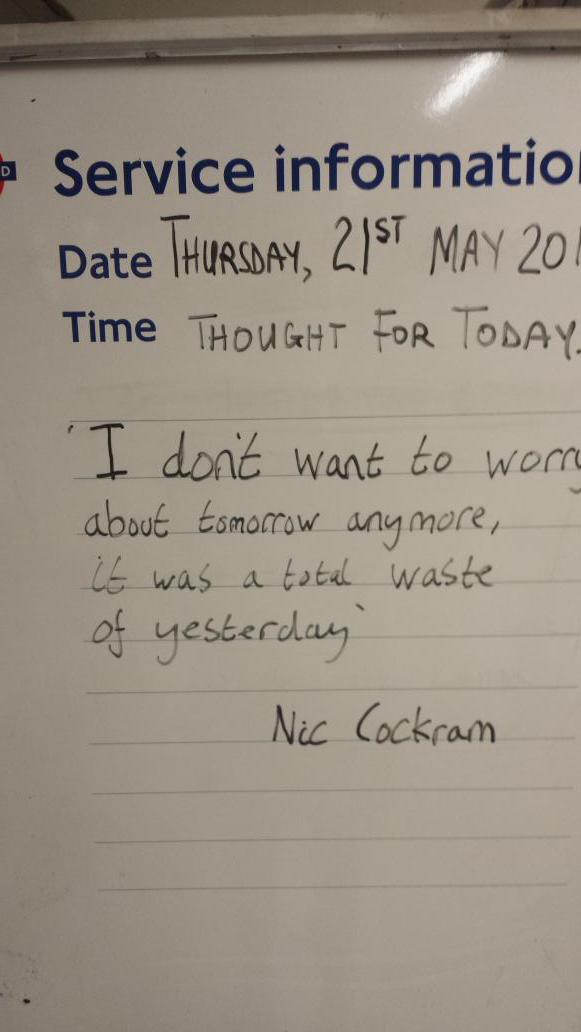 D
Service informatio
Date THURSDAY, 21ST MAY 201
Time THOUGHT FOR TODAY.
'I don't want to worry
about tomorrow anymore,
it was a total waste
of yesterday'
Nic Cockram